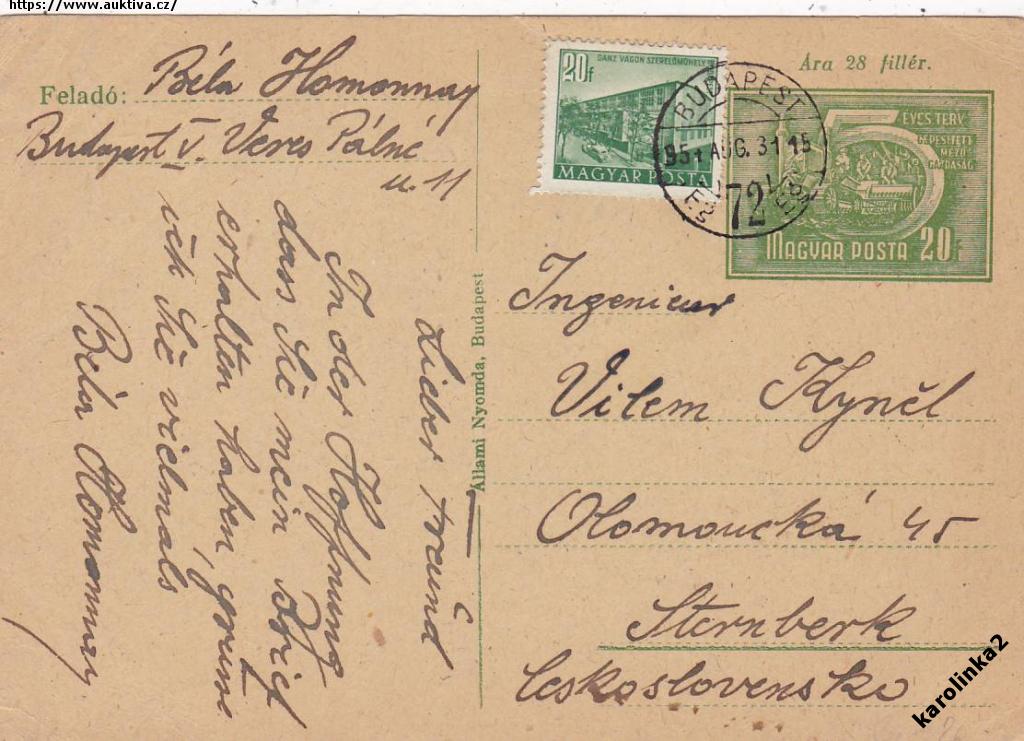 https://www.auktiva.cz/
Feladó: Béla Homonnay
Budapest V. Veres Pálné
u. 11
Lieber Freund
In der Hoffnung
dass Sie mein Brief
erhalten haben, grüsse
ich Sie vielmals
Béla Homonnay
Állami Nyomda, Budapest
20f
GANZ VAGON SZERELŐMŰHELY
MAGYAR POSTA
BUDAPEST
951 AUG. 31 15
72
Ára 28 fillér.
5 ÉVES TERV
GÉPESÍTETT
MEZŐ-
GAZDASÁG
MAGYAR POSTA 20f
Ingenieur
Vilem Kynčl
Olomoucká 45
Sternberk
Československo
karolinka2